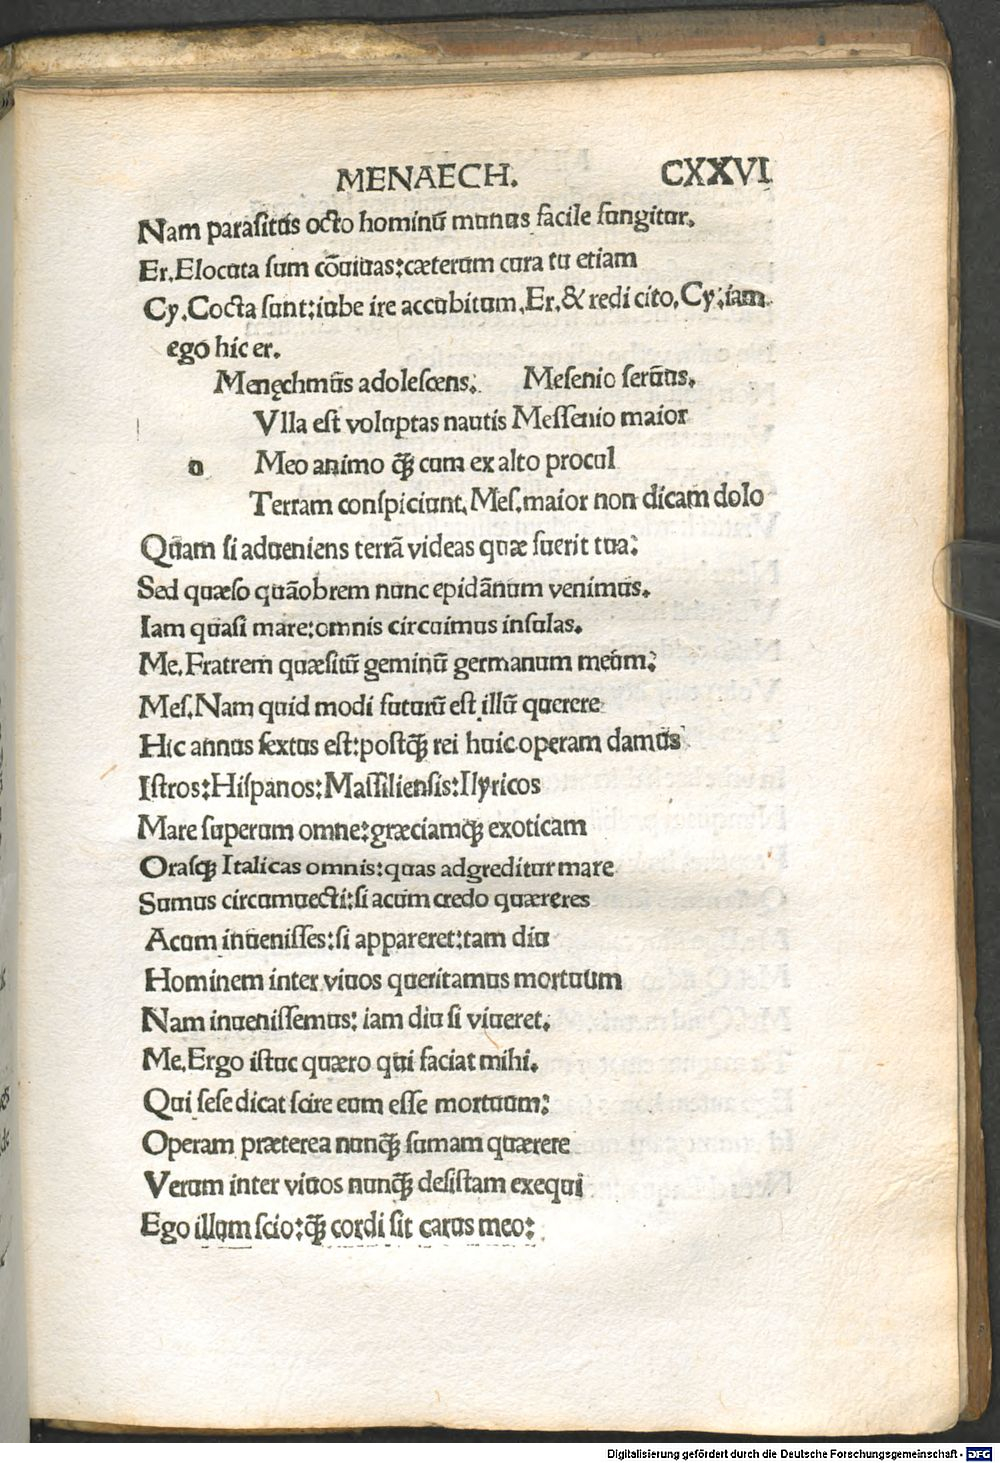 MENAECH. CXXVI
Nam parasitus octo hominū munus facile fungitur.
Er. Elocuta sum cōuiuas: cæterum cura tu etiam
Cy. Cocta sunt: iube ire accubitum. Er. & redi cito. Cy. iam
ego hic er.
Menęchmus adolescens. Mesenio seruus.
Vlla est voluptas nautis Messenio maior
u Meo animo qȝ cum ex alto procul
Terram conspiciunt. Mes. maior non dicam dolo
Quam si adueniens terrā videas quæ fuerit tua:
Sed quæso quāobrem nunc epidānum venimus.
Iam quasi mare: omnis circuimus insulas.
Me. Fratrem quæsitū geminū germanum meum:
Mes. Nam quid modi futurū est illū querere
Hic annus sextus est: postqȝ rei huic operam damus
Istros: Hispanos: Massiliensis: Ilyricos
Mare superum omne: græciamqȝ exoticam
Orasqȝ Italicas omnis: quas adgreditur mare
Sumus circumuecti: si acum credo quæreres
Acum inuenisses: si appareret: tam diu
Hominem inter viuos queritamus mortuum
Nam inuenissemus: iam diu si viueret.
Me. Ergo istuc quæro qui faciat mihi.
Qui sese dicat scire eum esse mortuum:
Operam præterea nunqȝ sumam quærere
Verum inter viuos nunqȝ desistam exequi
Ego illum scio: qȝ cordi sit carus meo:
Digitalisierung gefördert durch die Deutsche Forschungsgemeinschaft - DFG